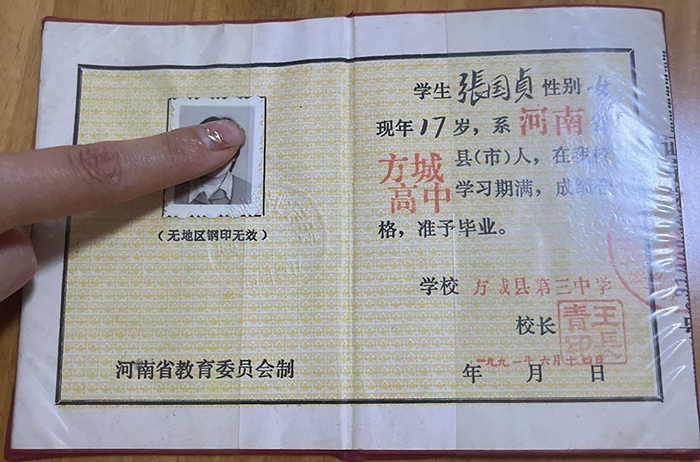 (无地区钢印无效)
河南省教育委员会制
学生 張国貞 性别 女
现年17岁，系 河南省
方城 县(市)人，在我校
高中 学习期满，成绩合
格，准予毕业。
学校 方城县第三中学
校长
一九九一年六月十四日
年 月 日